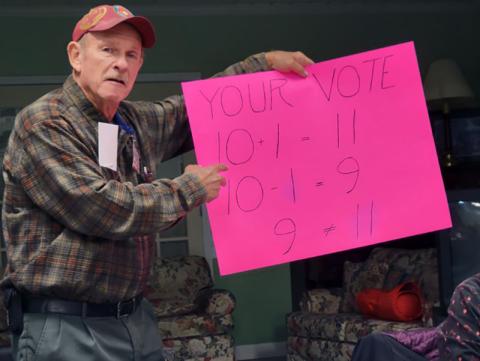 YOUR VOTE
10 + 1 = 11
10 - 1 = 9
9 ≠ 11